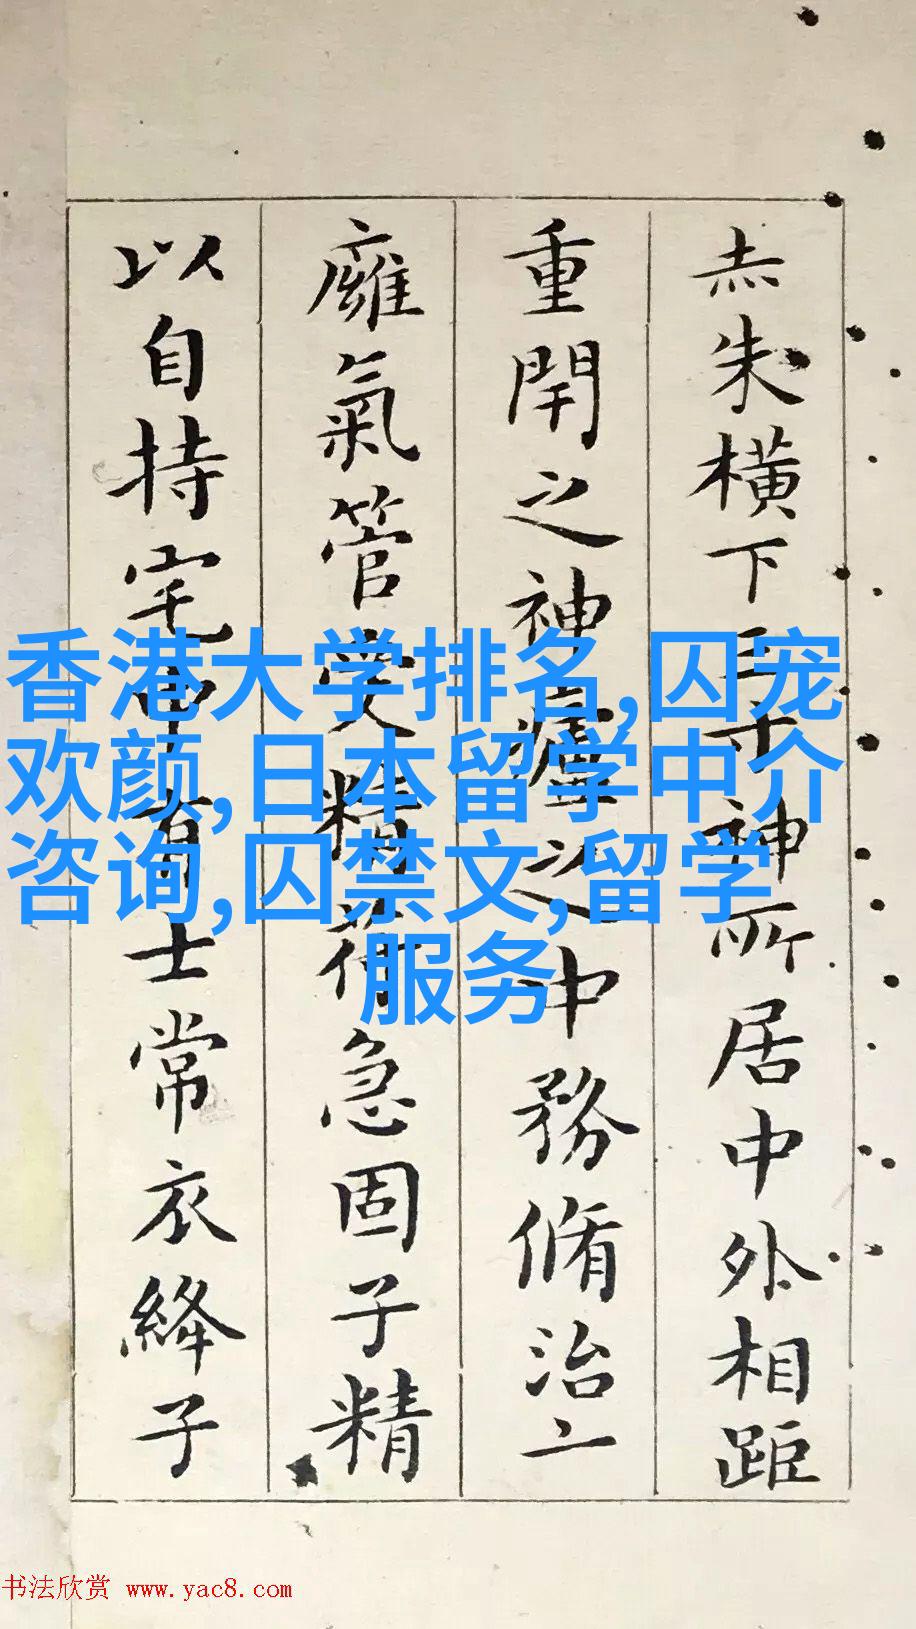 赤朱橫下三寸神所居中外相距
重閇之神廬之中務脩治
廱氣管受精符急固子精
以自持宅中有士常衣絳子
香港大学排名,囚宠
欢颜,日本留学中介
咨询,囚禁文,留学
服务
书法欣赏 www.yac8.com